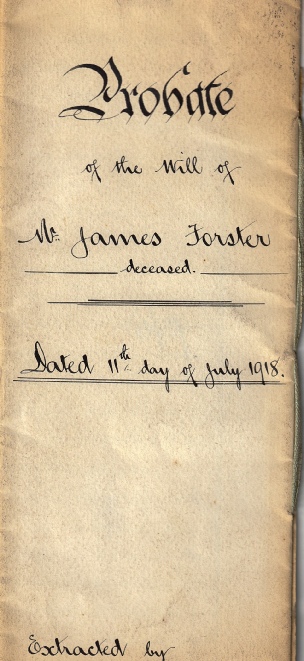 Probate
of the Will of
Mr. James Forster
deceased.
Dated 11th day of July 1918.
Extracted by